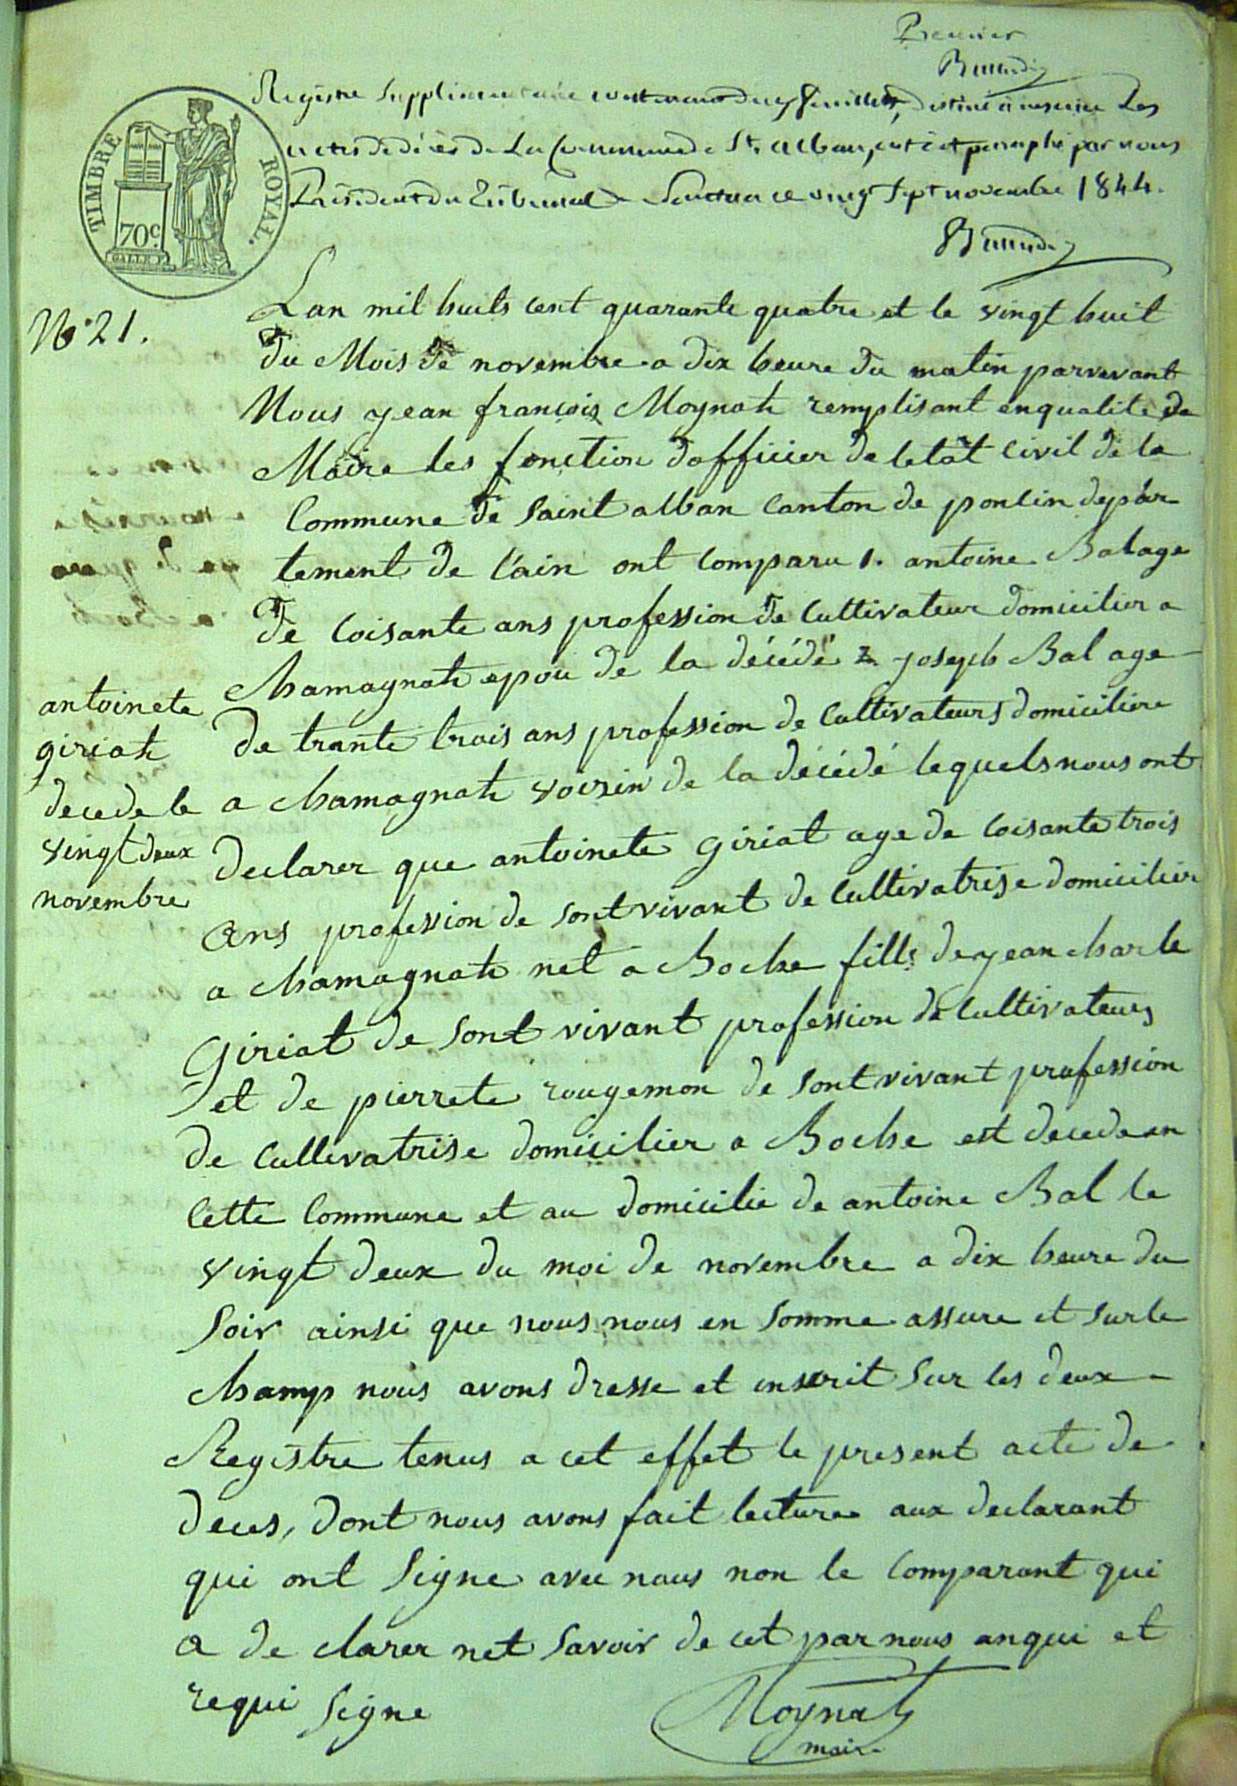 Premier
TIMBRE ROYAL.
70c.
GALLE F.
Registre supplémentaire contenant deux feuillets, destiné à inscrire Les
actes de décès de La Commune de St. alban, coté et paraphé par nous
Président du Tribunal ce vingt sept novembre 1844.
No. 21.
Lan mil huits cent quarante quatre et le vingt huit
du Mois de novembre a dix heure du matin parvevant
Nous yean françois Moynat remplisant enqualite de
Maire les fonction dofficier de letat civil de la
Commune de Saint alban canton de poncin depar
tement de l'ain ont comparu 1. antoine Bal age
de soisante ans profession de Cultivateur domicilier a
Chamagnat epou de la décédé 2 yoseph Bal age
de trante trois ans profession de Cultivateurs domiciliere
a Chamagnat voizin de la décédé lequels nous ont
declarer que antoinete giriat age de soisante trois
Ans profession de sont vivant de Cultivatrise domicilier
a Chamagnat net a Boche fille de yean charle
Giriat de sont vivant profession de Cultivateurs
et de pierrete rougemon de sont vivant profession
de Cultivatrise domicilier a Boche est decede en
Cette Commune et au domicilie de antoine Bal le
vingt deux du moi de novembre a dix heure du
Soir ainsi que nous nous en somme assure et surle
champ nous avons dresse et inscrit sur les deux
Registre tenus a cet effet le present acte de
deces, dont nous avons fait lecture aux declarant
qui ont signe avec nous non le comparant qui
a de clarer net savoir de cet par nous anqui et
requi signe
Moynat
maire
antoinete
giriat
decede le
vingt deux
novembre